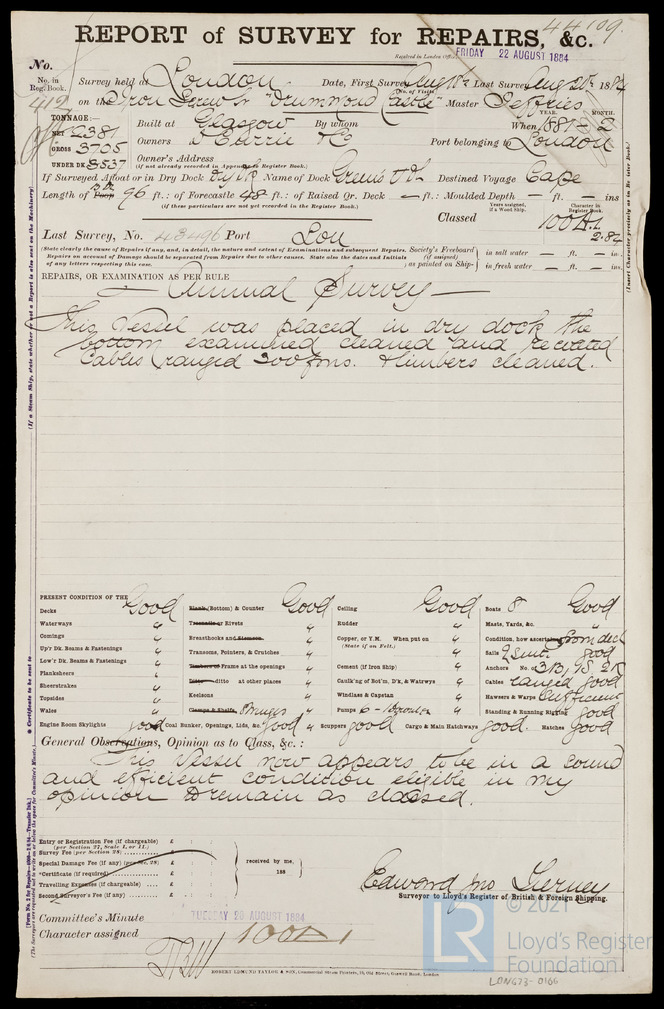 44109.
REPORT of SURVEY for REPAIRS, &c.
Received in London Office FRIDAY 22 AUGUST 1884
No.
No. in Reg. Book. Survey held at London Date, First Survey Aug 18th Last Survey Aug 20th 1884
(No. of Visits)
412 on the Iron Screw Sr "Drummond Castle" Master Jeffries
TONNAGE:— YEAR. MONTH.
NET 2381 Built at Glasgow By whom When 1881-2
GROSS 3705 Owners D Currie & Co Port belonging to London
UNDER DK 3537 Owner's Address
(if not already recorded in Appendix to Register Book.)
If Surveyed Afloat or in Dry Dock Dry Dk Name of Dock Green's Destined Voyage Cape
Length of Poop 96 ft.: of Forecastle 48 ft.: of Raised Qr. Deck — ft.: Moulded Depth — ft. — ins
(if these particulars are not yet recorded in the Register Book.)
Years assigned, if a Wood Ship. Character in Register Book.
Classed 100A1
2.84
Last Survey, No. 43496 Port Lon
(State clearly the cause of Repairs if any, and, in detail, the nature and extent of Examinations and subsequent Repairs.
Repairs on account of Damage should be separated from Repairs due to other causes. State also the dates and initials
of any letters respecting this case.
Society's Freeboard (if assigned) as painted on Ship— in salt water — ft. — in.
in fresh water — ft. — in.
REPAIRS, OR EXAMINATION AS PER RULE
— Annual Survey —
This Vessel was placed in dry dock the
bottom examined cleaned and recoated
Cables ranged 300 fms. & limbers cleaned.
PRESENT CONDITION OF THE
Decks Good Blank (Bottom) & Counter Good Ceiling Good Boats 8 Good
Waterways " Treenails or Rivets " Rudder " Masts, Yards, &c. "
Comings " Breasthooks and Stemson " Copper, or Y.M. When put on " Condition, how ascertained from deck
(State if on Felt.)
Up'r Dk. Beams & Fastenings " Transoms, Pointers, & Crutches " Sails good
Low'r Dk. Beams & Fastenings " Timbers or Frame at the openings " Cement (if Iron Ship) " Anchors No. of 3B, 1S 2K
Planksheers " Ditto ditto at other places " Caulk'ng of Bot'm, D'k, & Watrwys " Cables ranged good
Sheerstrakes " Keelsons " Windlass & Capstan " Hawsers & Warps Sufficient
Topsides " Clamps & Shelfs, Stringers " Pumps 6- " Standing & Running Rigging good
Wales "
Engine Room Skylights good Coal Bunker, Openings, Lids, &c. good Scuppers good Cargo & Main Hatchways good. Hatches good
General Observations, Opinion as to Class, &c. :
This Vessel now appears to be in a sound
and efficient condition eligible in my
opinion to remain as classed.
Entry or Registration Fee (if chargeable) £
(per Section 27, Scale 1, or 11.)
Survey Fee (per Section 28) £
Special Damage Fee (if any) (per Sec. 28) £
*Certificate (if required) £
Travelling Expenses (if chargeable) £
Second Surveyor's Fee (if any) £
received by me,
188
Edward Jno
Surveyor to Lloyd's Register of British & Foreign Shipping.
Committee's Minute TUESDAY 26 AUGUST 1884
Character assigned 100A1
ROBERT EDMUND TAYLOR & SON, Commercial Steam Printers, 19, Old Street, Goswell Road, London.
LR © 2021
Lloyd's Register
Foundation
LON673-0166
(If a Steam Ship, state whether or not a Report is also sent on the Machinery)
* Certificates to be sent to
(Insert Character precisely as in the Register Book.)